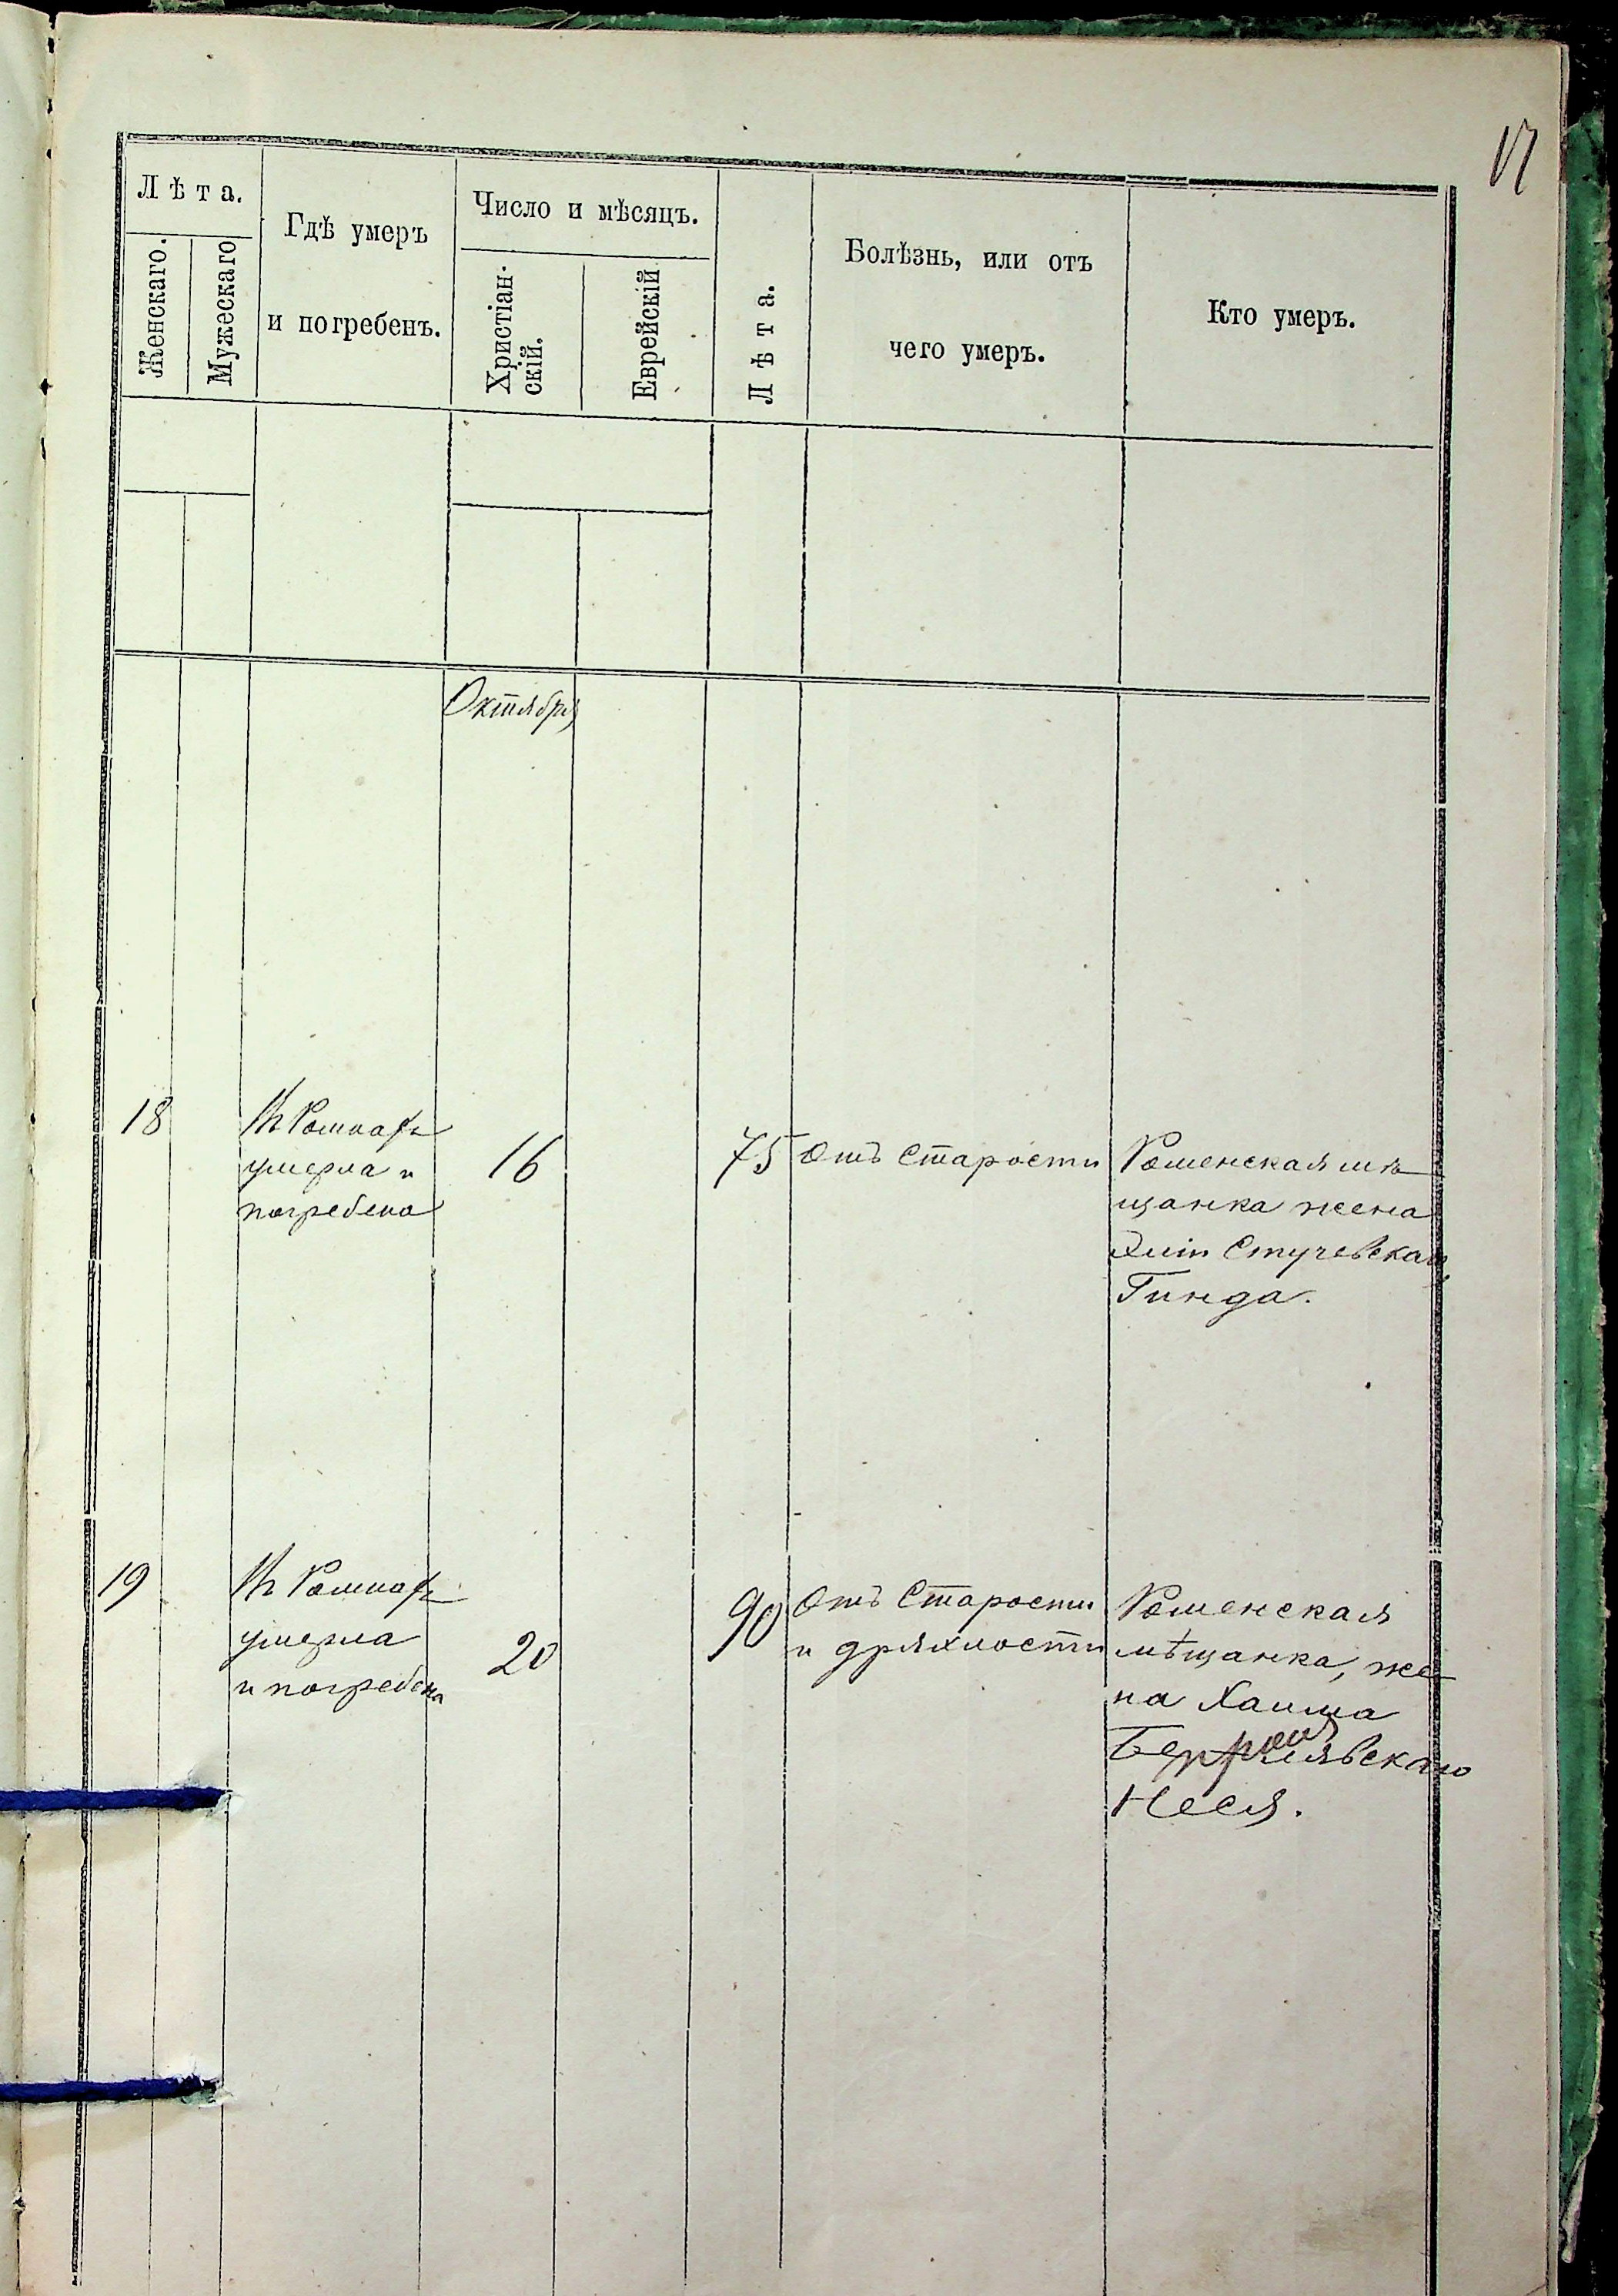 17
Лѣта.
Женскаго.
Мужескаго
Гдѣ умеръ
и погребенъ.
Число и мѣсяцъ.
Христіан-
скій.
Еврейскій
Лѣта.
Болѣзнь, или отъ
чего умеръ.
Кто умеръ.
Октября
18
Въ Ромнахъ
умерла и
погребена
16
75
Отъ Старости
Роменская мѣ
щанка жена
Стучевская
Гинда.
19
Въ Ромнахъ
умерла
и погребена
20
90
Отъ Старости
и дряхлости
Роменская
мѣщанка, же
на Хаима
Неся.